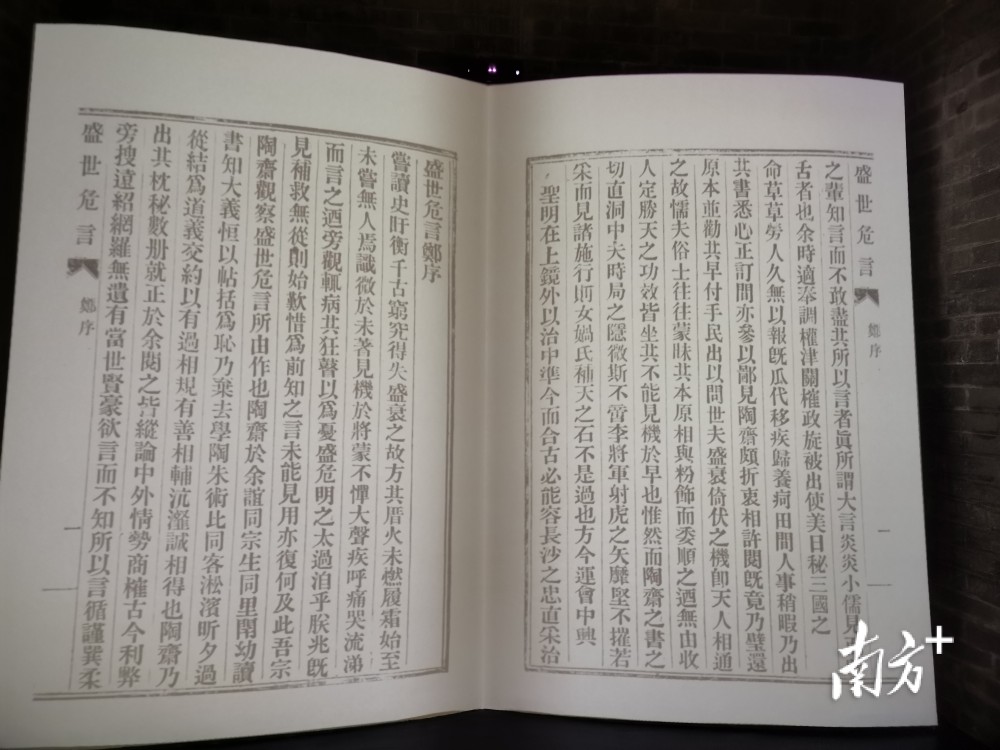 盛世危言鄭序
嘗讀史盱衡千古窮究得失盛衰之故方其厝火未燃履霜始至
未嘗無人焉識微於未著見機於將蒙不憚大聲疾呼痛哭流涕
而言之迺旁觀輒病其狂瞽以爲憂盛危明之太過洎乎朕兆旣
見補救無從則始歎惜爲前知之言未能見用亦復何及此吾宗
陶齋觀察盛世危言所由作也陶齋於余誼同宗生同里閈幼讀
書知大義恒以帖括爲恥乃棄去學陶朱術比同客淞濱昕夕過
從結爲道義交約以有過相規有善相輔沆瀣誠相得也陶齋乃
出其枕秘數册就正於余閱之皆縱論中外情勢商榷古今利弊
旁搜遠紹網羅無遺有當世賢豪欲言而不知所以言循謹巽柔
盛世危言 鄭序 一
盛世危言 鄭序 一
之輩知言而不敢盡其所以言者眞所謂大言炎炎小儒見
舌者也余時適奉調權津關榷政旋被出使美日秘三國之
命草草勞人久無以報旣瓜代移疾歸養疴田間人事稍暇乃出
其書悉心正訂間亦參以鄙見陶齋頗折衷相許閱旣竟乃璧還
原本並勸其早付手民出以問世夫盛衰倚伏之機卽天人相通
之故懦夫俗士往往蒙昧其本原相與粉飾而委順之迺無由收
人定勝天之功效皆坐其不能見機於早也惟然而陶齋之書之
切直洞中夫時局之隱微斯不啻李將軍射虎之矢靡堅不摧若
采而見諸施行則女媧氏補天之石不是過也方今運會中興
聖明在上鏡外以治中準今而合古必能容長沙之忠直采治
南方+